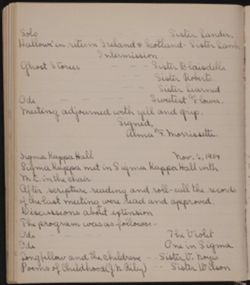 Solo Sister Lander.
Hallowe'en in Ireland & Scotland - Sister Lamb
Intermission
Ghost Stories Sister Blaisdell
Sister Roberts
Sister Learned
Ode Sweetest Flower.
Meeting adjourned with yell and grip.
Signed,
Anna F. Morrissette.
Sigma Kappa Hall Nov.
Sigma Kappa met in Sigma Kappa Hall with
in the chair
After scripture reading and roll-call the records
of the last meeting were read and approved.
Discussions about extension
The program was as follows:-
Ode The Violet
Ode One in Sigma
Longfellow and the children - Sister V.
Poems of Childhood (J. W. Riley) Sister Wilson